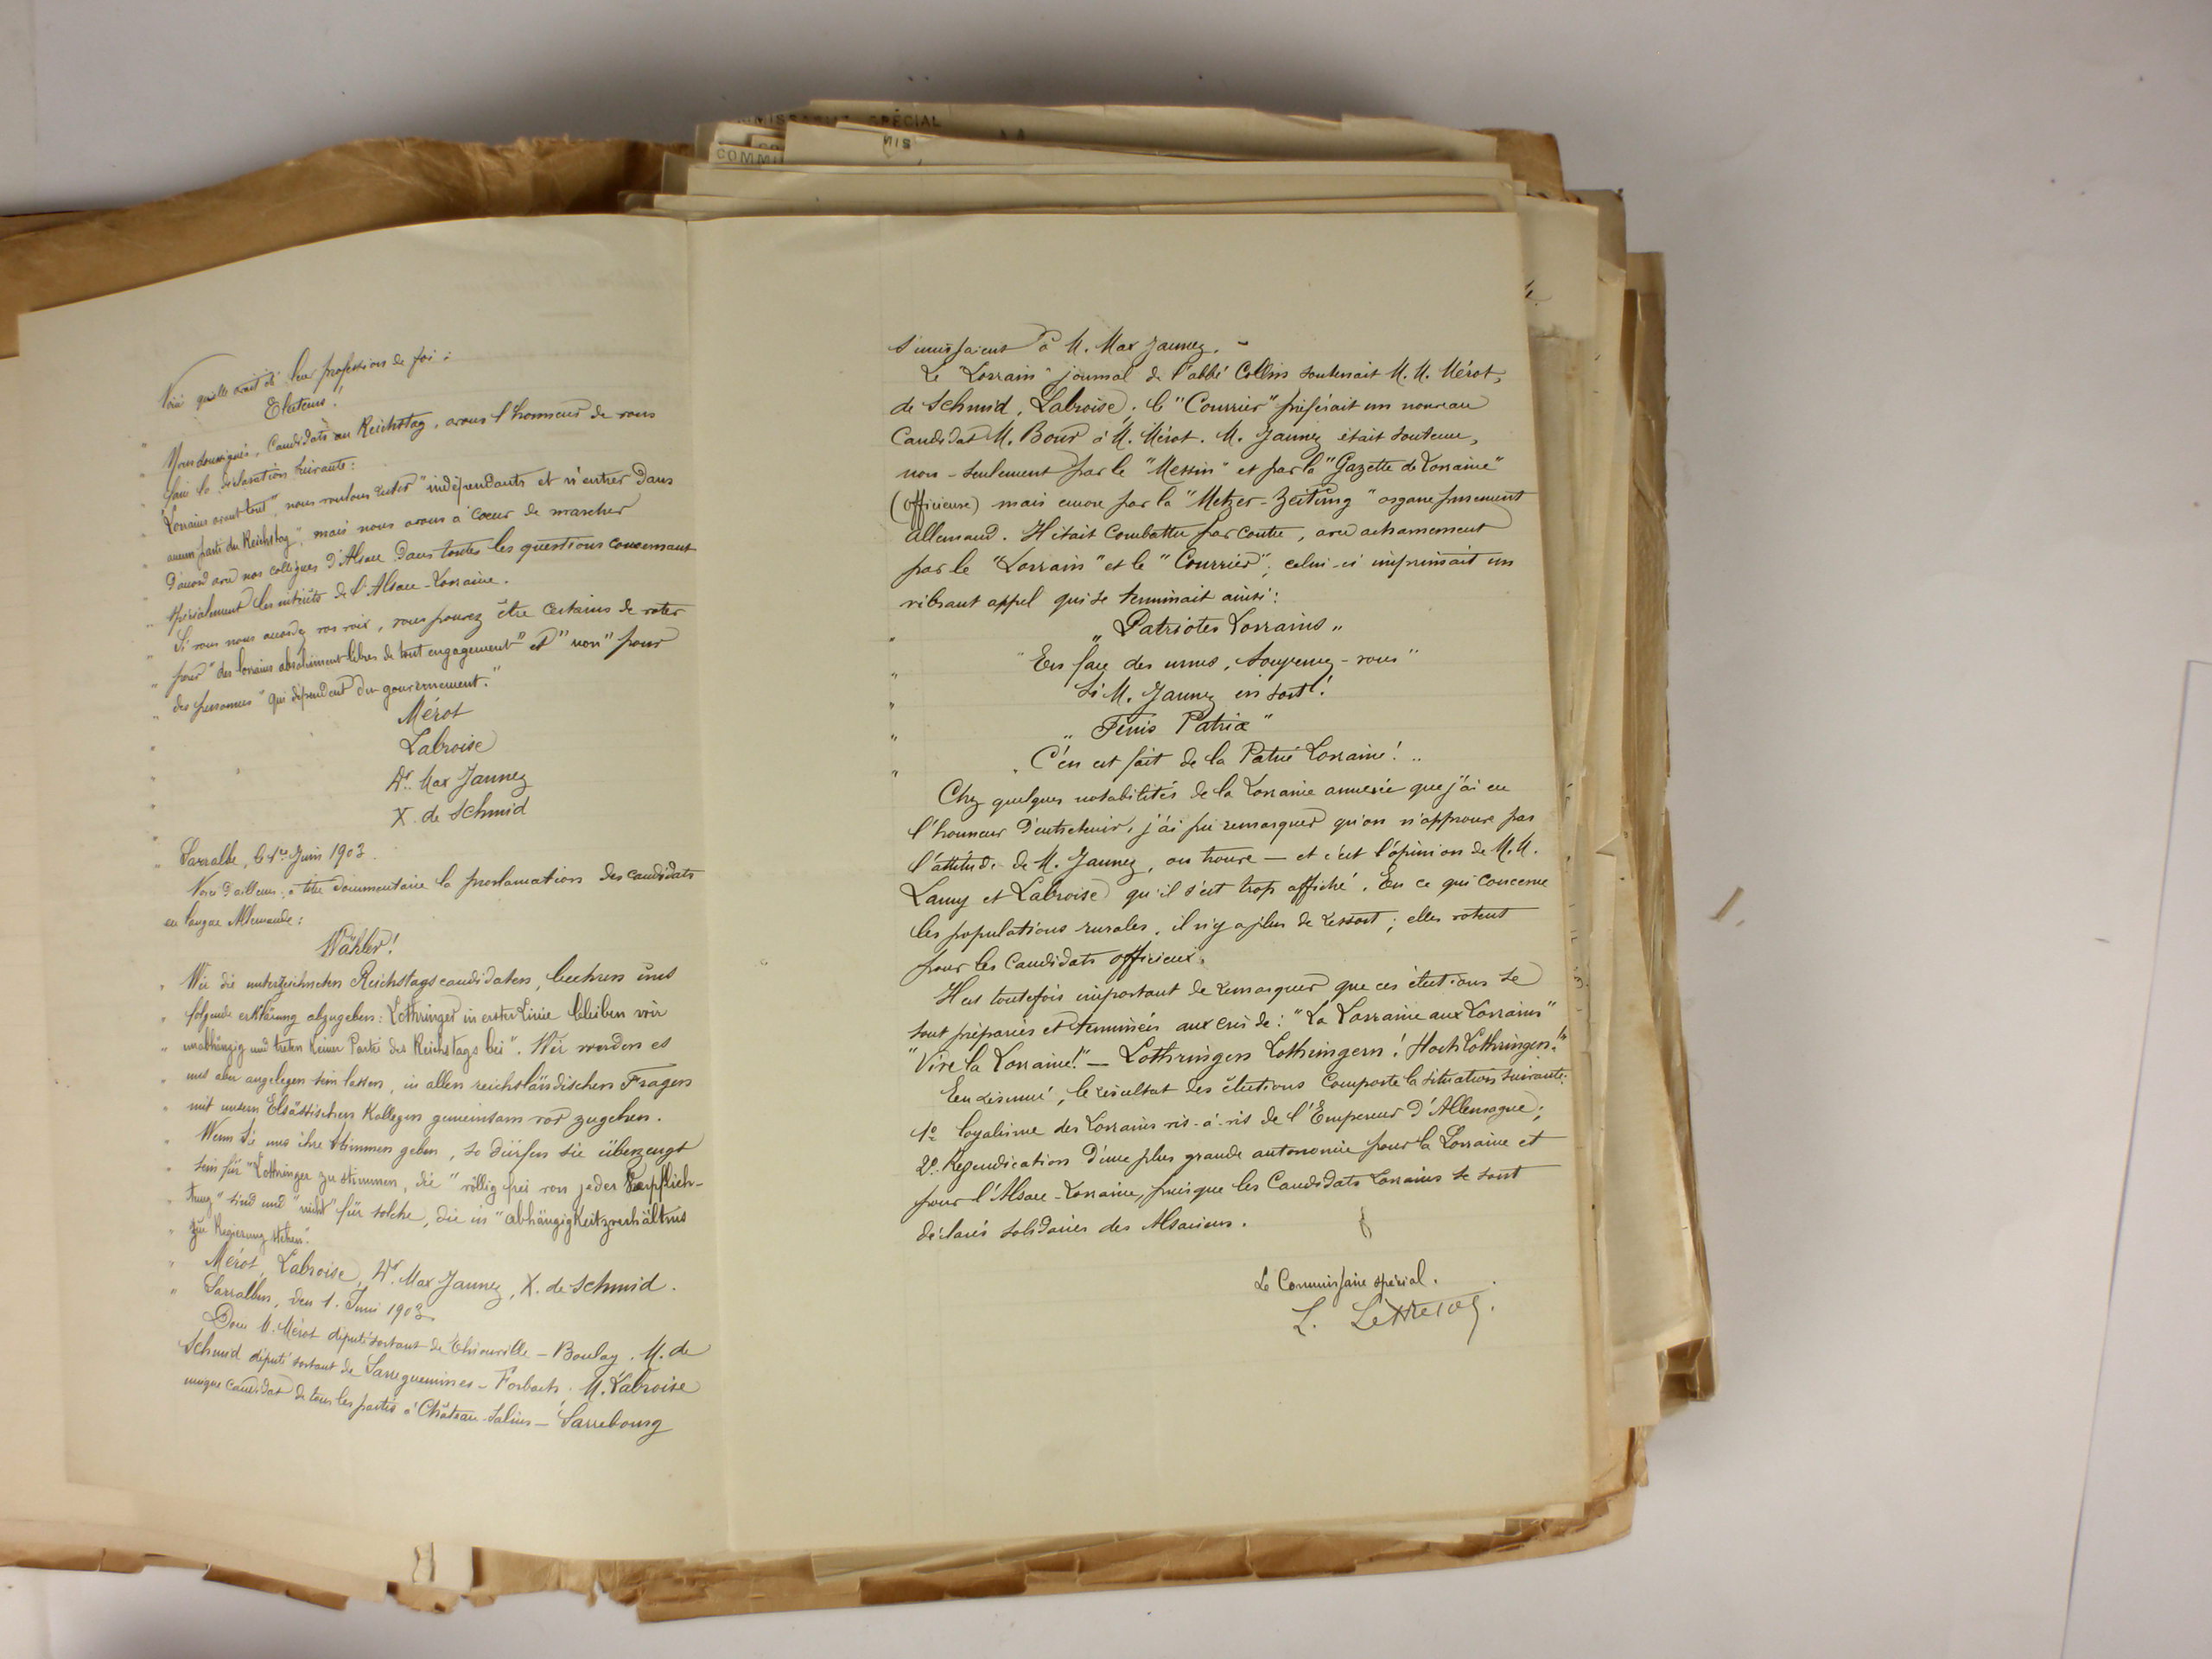 COMMISSARIAT SPÉCIAL
COMMIS
MIS
Voici quelle avait été leur profession de foi :
Electeurs!
" Nous soussignés, Candidats au Reichstag, avons l'honneur de vous
" faire la déclaration suivante :
" Lorrains avant tout", nous voulons rester "indépendants et n'entrer dans
" aucun parti du Reichstag", mais nous avons à coeur de marcher
" d'accord avec nos collègues d'Alsace dans toutes les questions concernant
" spécialement les intérêts de l'Alsace-Lorraine.
" Si vous nous accordez vos voix, vous pouvez être certains de voter
" pour "des lorrains absolument libres de tout engagement" et "non" pour
" des personnes" qui dépendent du gouvernement."
" Mérot
" Labroise
" Dr Max Jaunez
" X. de Schmid
" Sarralbe, le 1er Juin 1903.
Voici d'ailleurs, à titre documentaire la proclamation des candidats
en langue Allemande :
Wähler!
" Wir die unterzeichneten Reichstagscandidaten, beehren uns
" folgende erklärung abzugeben: Lothringer in erster Linie bleiben wir
" unabhängig und treten keiner Partei des Reichstags bei". Wir werden es
" uns aber angelegen sein lassen, in allen reichsländischen Fragen
" mit unsern Elsässischen Kollegen gemeinsam vor zugehen.
" Wenn Sie uns ihre Stimmen geben, so dürfen sie überzeugt
" sein für "Lothringer zu stimmen, die "völlig frei von jeder Verpflich-
" tung" sind und "nicht" für solche, die in "abhängigkeitzverhältnis
" zur Regierung stehen".
" Mérot, Labroise, Dr. Max Jaunez, X. de Schmid.
" Sarralben, den 1. Juni 1903
Donc M. Mérot député sortant de Thionville - Boulay. M. de
Schmid député sortant de Sarreguemines - Forbach. M. Labroise
unique candidat de tous les partis à Château-Salins - Sarrebourg
s'unissaient à M. Max Jaunez.
Le "Lorrain" journal de l'abbé Collin soutenait M.M. Mérot,
de Schmid, Labroise; le "Courrier" préférait un nouveau
Candidat M. Bour à M. Mérot. M. Jaunez était soutenu,
non-seulement par le "Messin" et par la "Gazette de Lorraine"
(officieuse) mais encore par la "Metzer-Zeitung" organe purement
allemand. Il était Combattu par contre, avec acharnement
par le "Lorrain" et le "Courrier"; celui-ci imprimait un
vibrant appel qui se terminait ainsi :
" „ Patriotes Lorrains „
" "En face des urnes, Souvenez-vous"
" Si M. Jaunez en sort!
" „ Finis Patriæ "
" „ C'en est fait de la Patrie Lorraine! „
Chez quelques notabilités de la Lorraine annexée que j'ai eu
l'honneur d'entretenir, j'ai pu remarquer qu'on n'approuve pas
l'attitude de M. Jaunez, on trouve — et c'est l'opinion de M.M.
Lamy et Labroise qu'il s'est trop affiché. En ce qui concerne
les populations rurales, il n'y a plus de ressort; elles votent
pour les Candidats officieux.
Il est toutefois important de remarquer que ces élections se
sont préparées et terminées aux cris de : "La Lorraine aux Lorrains"
"Vive la Lorraine!" — Lothringen Lothringern! Hoch Lothringen!"
En résumé, le résultat des élections Comporte la situation suivante:
1º loyalisme des Lorrains vis-à-vis de l'Empereur d'Allemagne;
2º. Revendication d'une plus grande autonomie pour la Lorraine et
pour l'Alsace-Lorraine, puisque les Candidats Lorrains se sont
déclarés solidaires des Alsaciens.
Le Commissaire spécial.